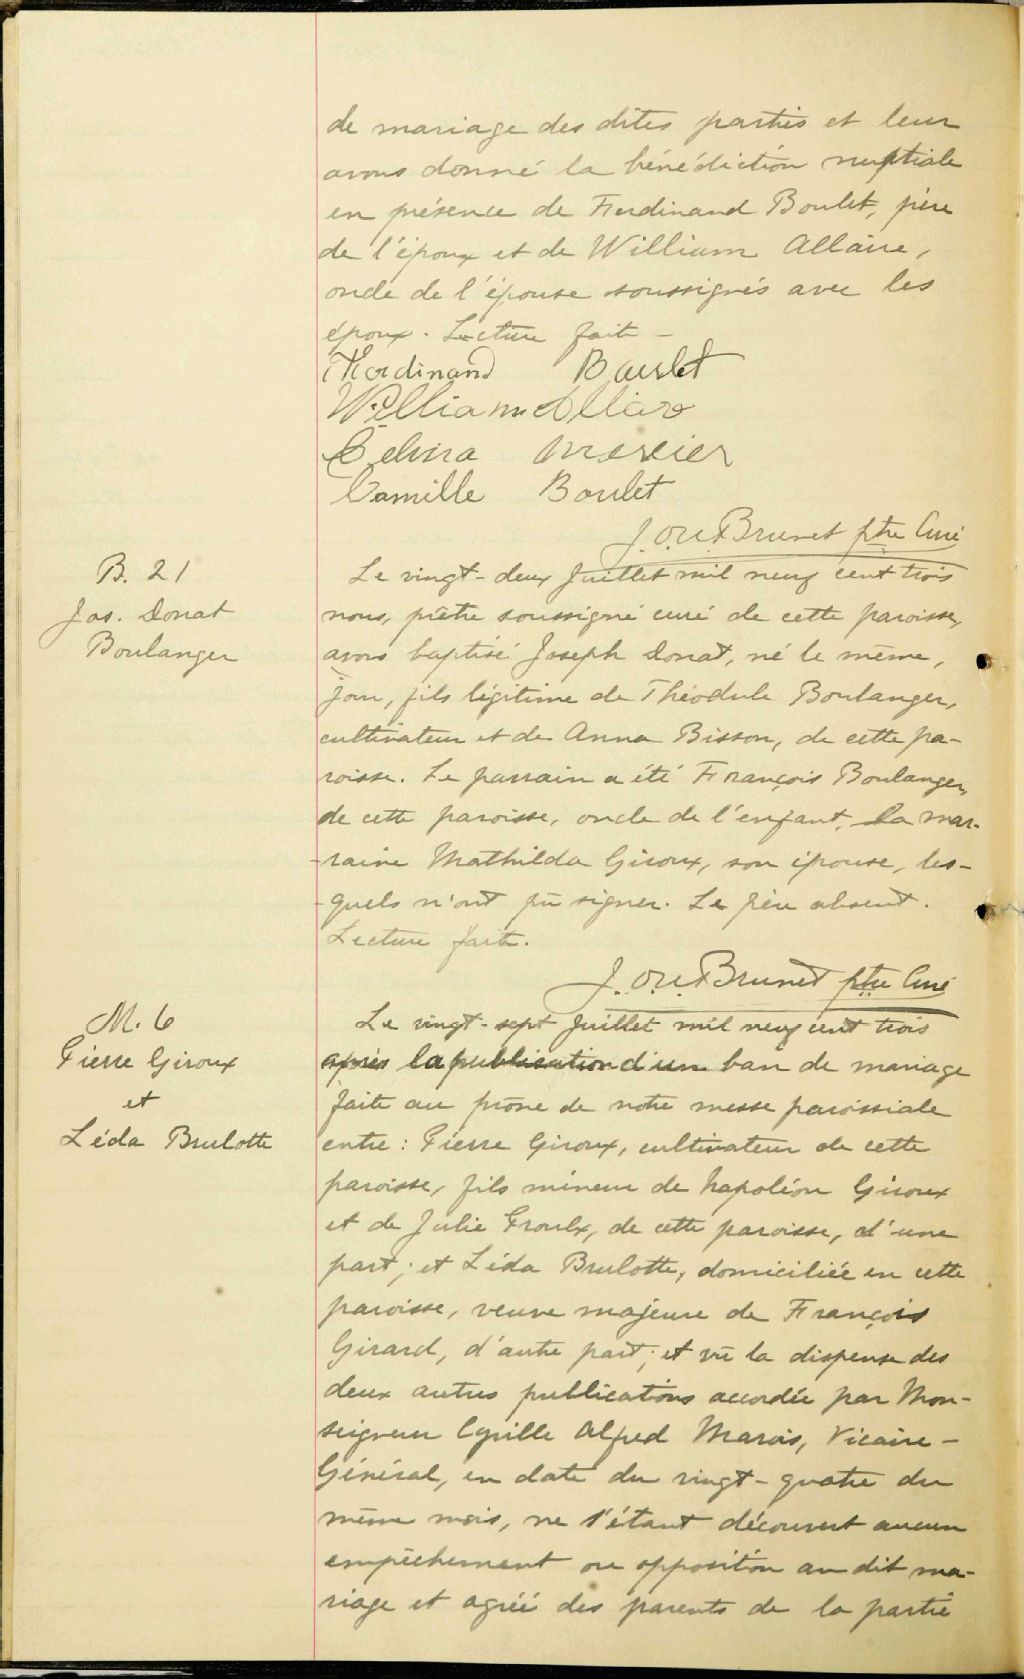 de mariage des dites parties et leur
avons donné la bénédiction nuptiale
en présence de Ferdinand Boulet, père
de l'époux et de William Allaire,
oncle de l'épouse soussignés avec les
époux. Lecture faite —
Ferdinand Boulet
William Allaire
Mercier
Camille Boulet
J. Brunet ptre Curé
B. 21
Jos. Donat
Boulanger
Le vingt-deux Juillet mil neuf cent trois
nous, prêtre soussigné curé de cette paroisse,
avons baptisé Joseph Donat, né le même,
jour, fils légitime de Théodule Boulanger,
cultivateur et de Anna Bisson, de cette pa-
roisse. Le parrain a été François Boulanger,
de cette paroisse, oncle de l'enfant, la mar-
-raine Mathilda Giroux, son épouse, les-
-quels n'ont pû signer. Le père absent.
Lecture faite.
J. Brunet ptre Curé
M. 6
Pierre Giroux
et
Léda Brulotte
Le vingt-sept Juillet mil neuf cent trois
après la publication d'un ban de mariage
faite au prône de notre messe paroissiale
entre : Pierre Giroux, cultivateur de cette
paroisse, fils mineur de Napoléon Giroux
et de Julie Proulx, de cette paroisse, d'une
part; et Léda Brulotte, domiciliée en cette
paroisse, veuve majeure de François
Girard, d'autre part; et vû la dispense des
deux autres publications accordée par Mon-
seigneur Cyrille Alfred Marois, Vicaire-
Général, en date du vingt-quatre du
même mois, ne s'étant découvert aucun
empêchement ou opposition au dit ma-
riage et agréé des parents de la partie